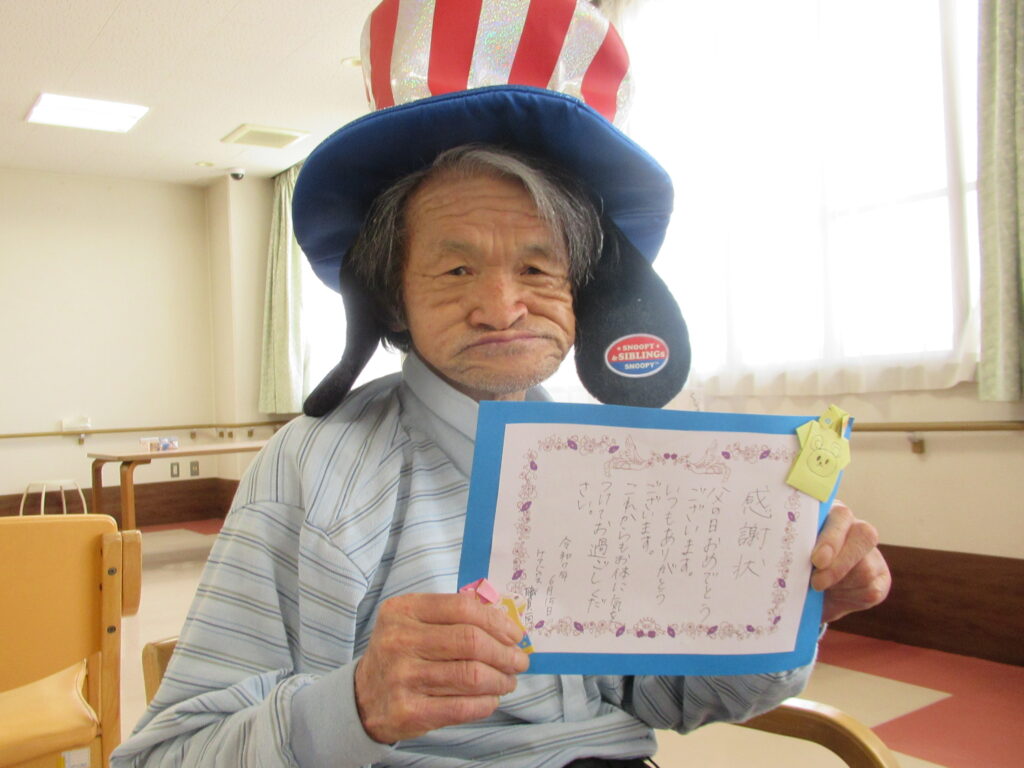 SNOOPY
&SIBLINGs
SNOOPY™
感謝状
父の日おめでとう
ございます。
いつもありがとう
ございます。
これからもお体に気を
つけてお過ごしくだ
さい。
令和7年
6月15日
職員一同